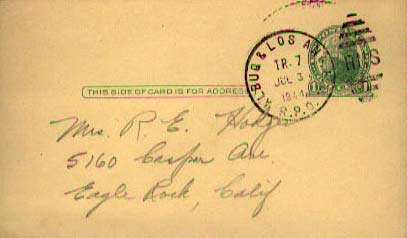 ALBUQ & LOS ANG
TR. 7
JUL 3
1944
R.P.O.
R M S
THIS SIDE OF CARD IS FOR ADDRESS
Mrs. R. E. Hodge
5160 Casper Ave.
Eagle Rock, Calif